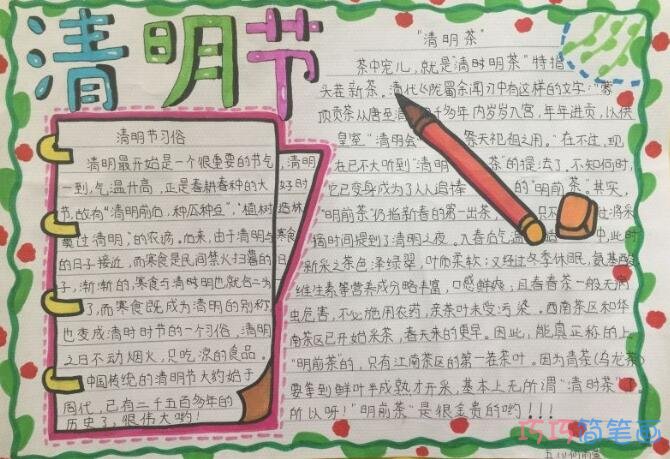 清明节
清明节习俗
清明最开始是一个很重要的节气,清明
一到,气温升高,正是春耕春种的大好时
节,故有"清明前后,种瓜种豆","植树造林
莫过清明"的农谚。后来,由于清明与寒食
的日子接近,而寒食是民间禁火扫墓的
日子,渐渐的,寒食与清明也就合二为
了,而寒食既成为清明的别称
也变成清明时节的一个习俗,清明
之日不动烟火,只吃凉的食品。
中国传统的清明节大约始于
周代,已有二千五百多年的
历史了,很伟大哟!
"清明茶"
茶中宠儿,就是"清时明茶"特指
头茬新茶,清代《陇蜀余闻》中有这样的文字:"蒙
顶贡茶从唐至清 千多年内岁岁入宫,年年进贡,以供
皇室"清明会" 祭天祀祖之用。"在不过,现
在已不大听到"清明 茶"的提法了,不知何时,
它已变身成为了人人追棒 的"明前茶"。其实,
"明前茶"仍指新春的第一出茶 只不 过将采
摘时间提到了清明之夜。入春后气温 中,此时
新采之茶色泽绿翠,叶质柔软;又经过冬季休眠,氨基酸
维生素等营养成分略丰富,口感鲜爽,且春季茶一般无病
虫危害,不必施用农药,亲茶叶未受污染。西南茶区和华
南茶区已开始采茶,春天来的更早。因此,能真正称的上
"明前茶"的,只有江南茶区的第一茬茶叶。因为青茶(乌龙茶)
要拿到鲜叶半成熟才开采,基本上无所谓"清时茶"
所以呀!"明前茶"是很金贵的哟!!!
巧巧简笔画